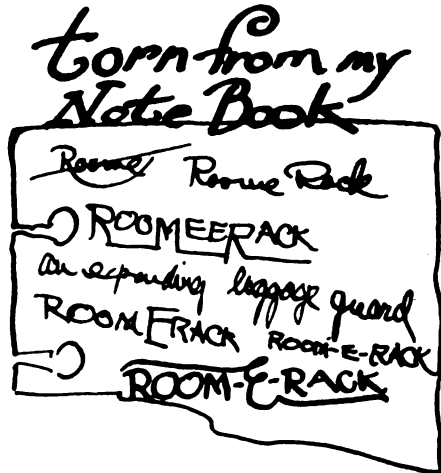 torn from my
Note Book
Roome Roome Rack
ROOMEERACK
an expanding luggage guard
ROOMERACK ROOM-E-RACK
ROOM-E-RACK